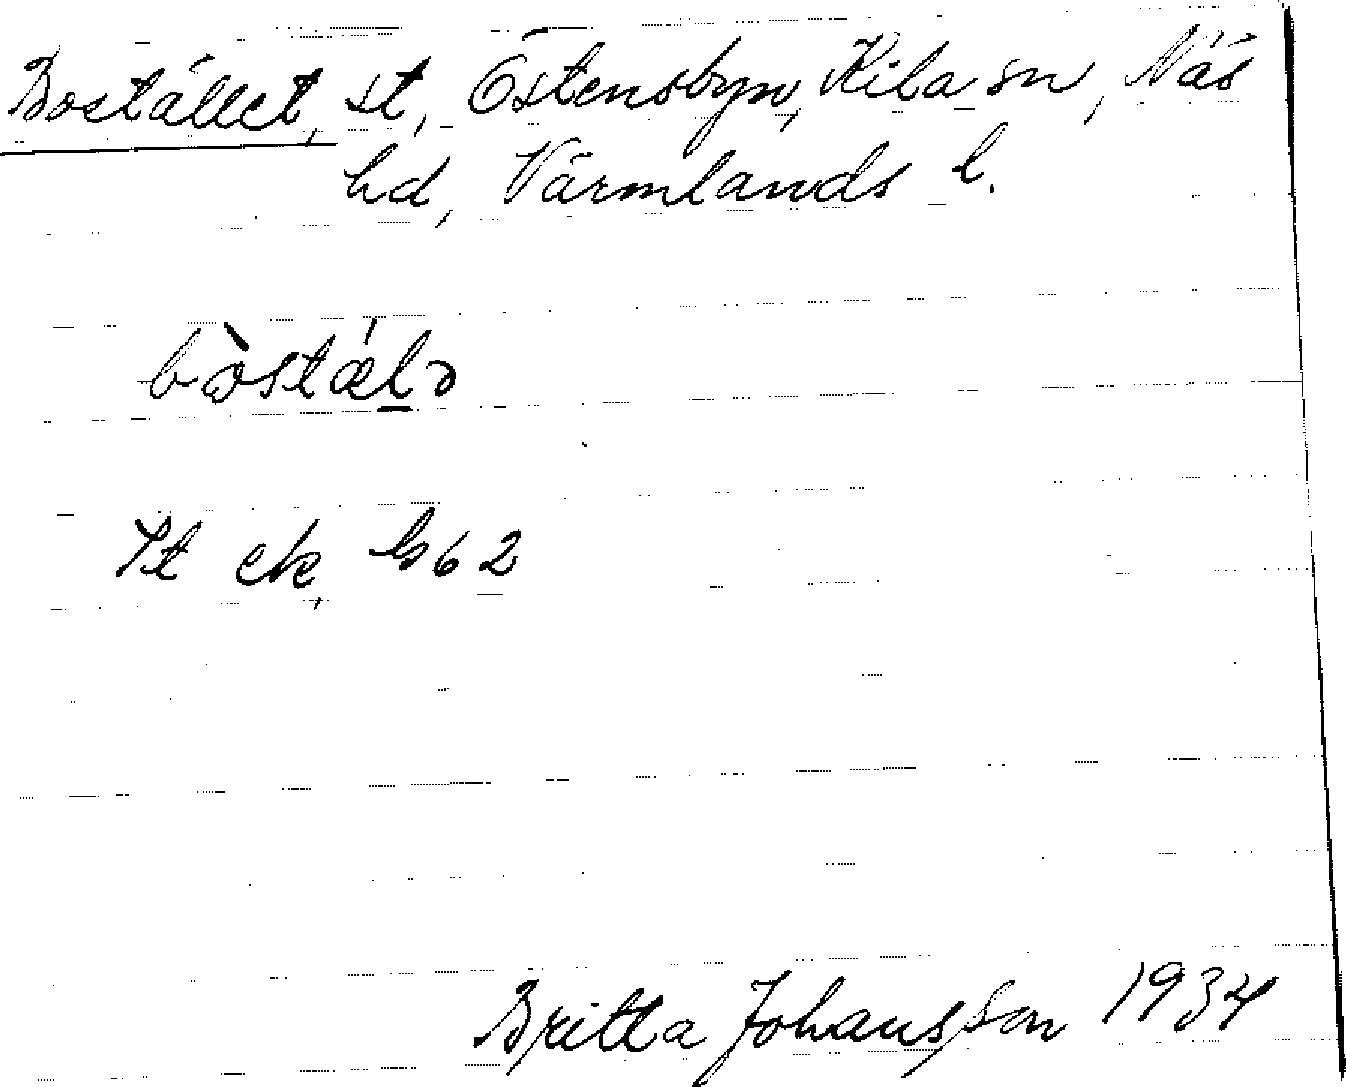 Bostället, st, Östensbyn, Kila sn, Näs
hd, Värmlands l.
bòstǽlə
St ek, b 62
Britta Johansson 1934